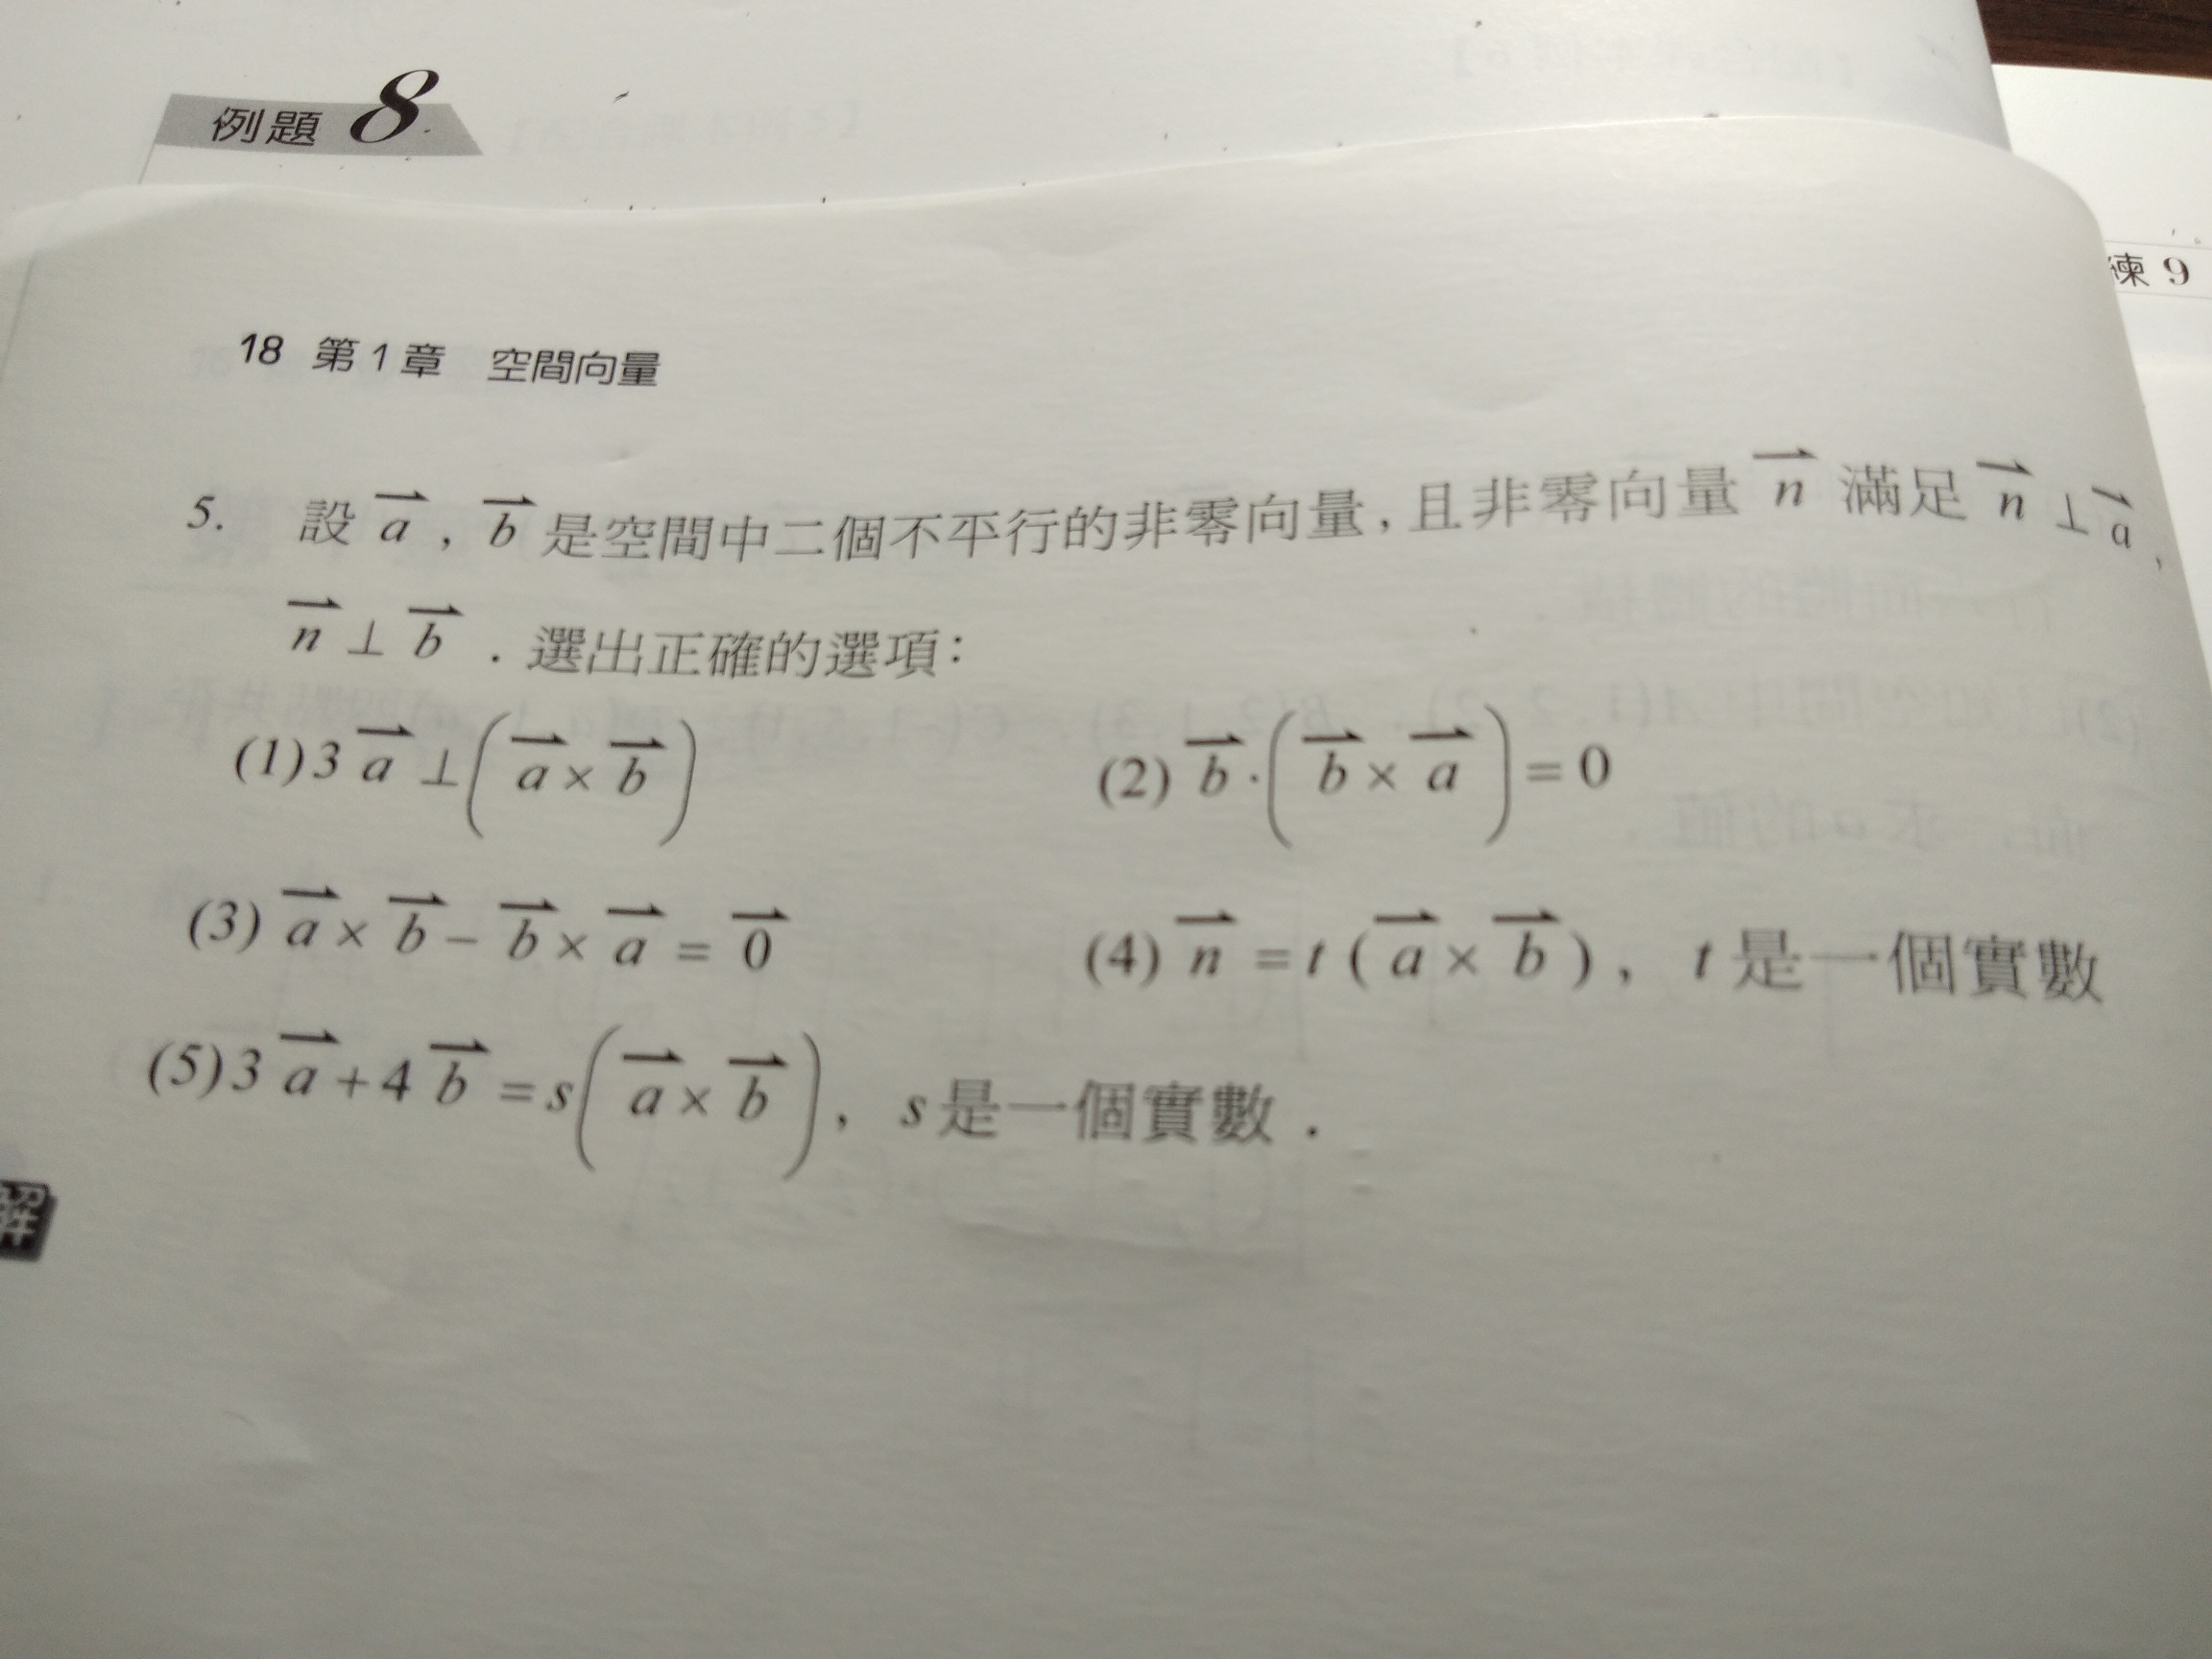 例題 8
練 9
18 第1章 空間向量
5. 設 $\vec{a}$ , $\vec{b}$ 是空間中二個不平行的非零向量,且非零向量 $\vec{n}$ 滿足 $\vec{n} \perp \vec{a}$ ,
$\vec{n} \perp \vec{b}$ .選出正確的選項:
(1) $3\vec{a} \perp \left(\vec{a} \times \vec{b}\right)$ (2) $\vec{b} \cdot \left(\vec{b} \times \vec{a}\right) = 0$
(3) $\vec{a} \times \vec{b} - \vec{b} \times \vec{a} = \vec{0}$ (4) $\vec{n} = t(\vec{a} \times \vec{b})$ , $t$ 是一個實數
(5) $3\vec{a} + 4\vec{b} = s\left(\vec{a} \times \vec{b}\right)$ , $s$ 是一個實數.
解